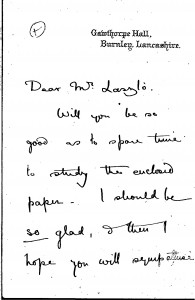 Gawthorpe Hall,
Burnley, Lancashire.
Dear Mr. László.
Will you be so
good as to spare time
to study the enclosed
paper - I should be
so glad, & then I
hope you will sympathise